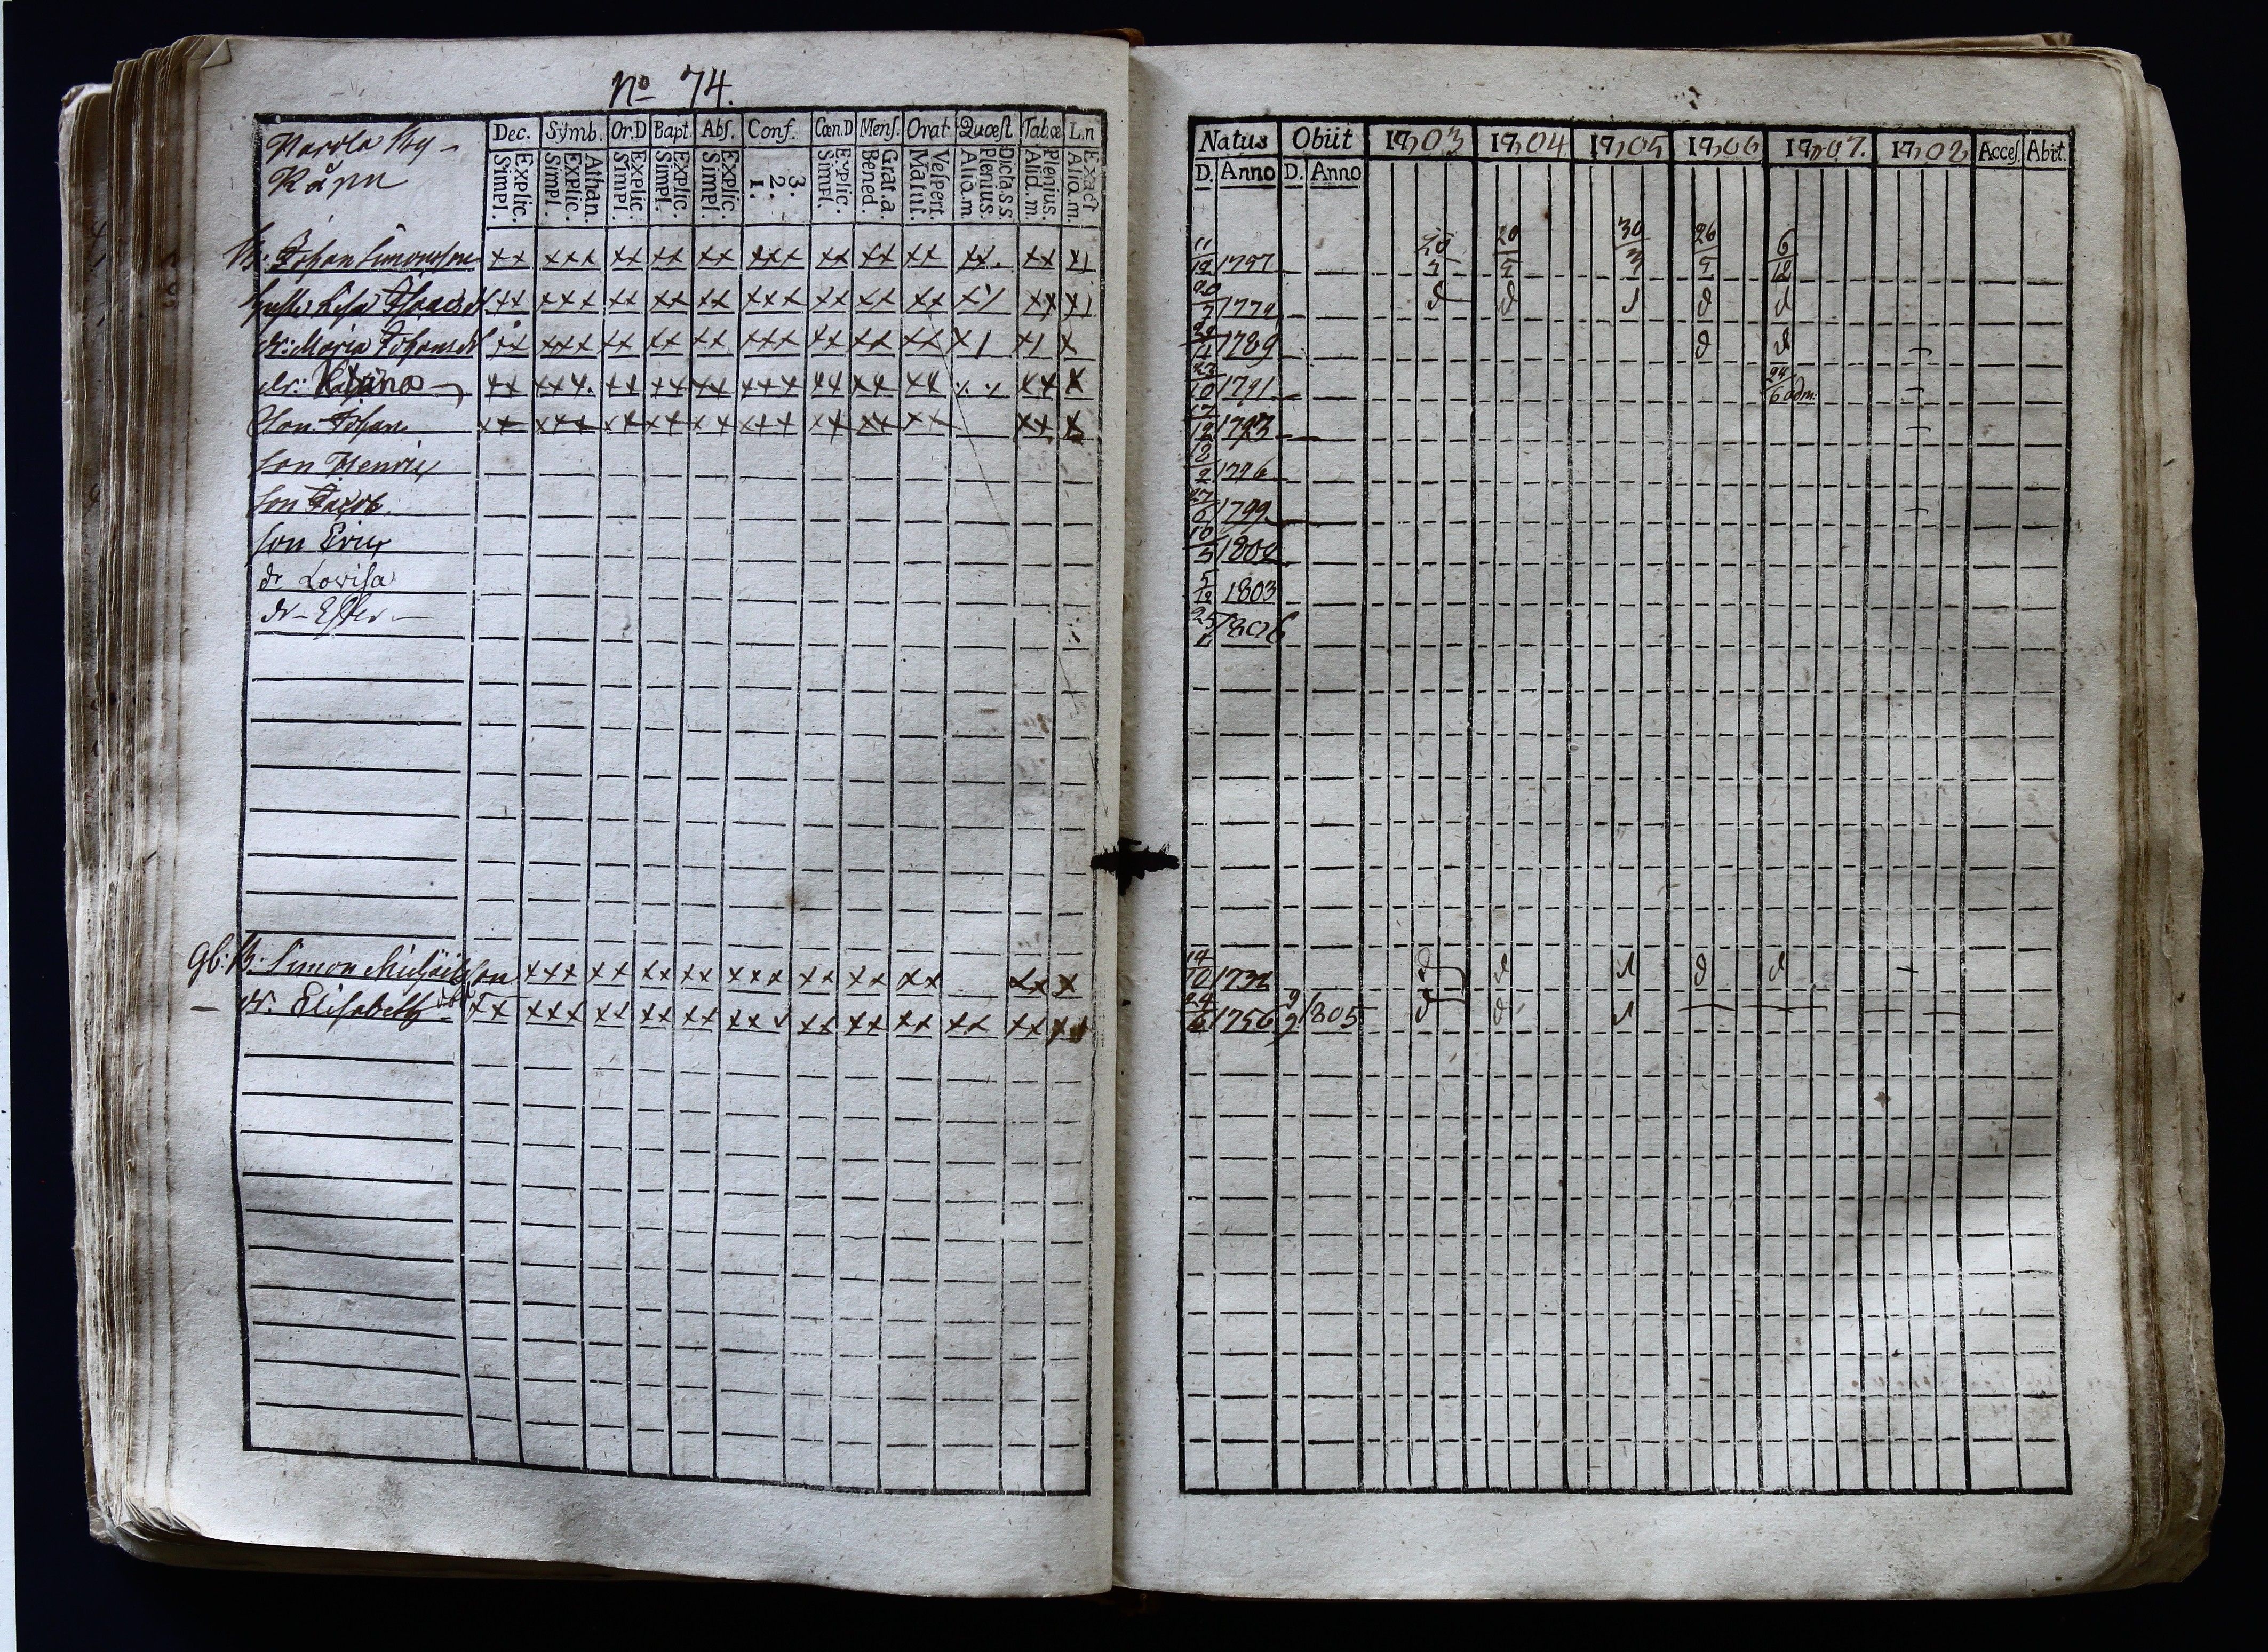 No 74.
Narvla By -
Räpn
Dec. Symb. Or.D Bapt Abs. Conf. Cœn.D Mens. Orat. Quœst. Tab.œ L.n
Explic. Simpl. Athan. Explic. Simpl. Explic. Simpl. Explic. Simpl. Explic. Simpl. 3. 2. 1. Explic. Simpl. Grat.a. Bened. Vespert. Matut. Dicta s.s. Plenius. Aliq.m. Plenius. Aliq.m. Exact Aliq.m.
B: Johan Simonsson xx xxx xx xx xx xxx xx xx xx xx. xx x1
hust: Lisa Isaacsdr xx xxx xx xx xx xxx xx xx xx x1 xx x1
dr: Maria Johansdr xx xxx xx xx xx xxx xx xx xx x1 x1 x
dr: xx xxx. xx xx xx xxx xx xx xx xx x
Son Johan xx xxx xx xx xx xxx xx xx xx xx x
Son Henric
Son Jacob.
Son Eric
dr Lovisa
dr - Ester
gl: B: Simon Michäelsson xxx xx xx xx xxx xx xx xx xx x
dr. Elisabeth xx xxx xx xx xx xxx xx xx xx xx xx
Natus Obiit 1703 1704 1705 1706 1707. 1702 Acces. Abiit.
D. Anno D. Anno
20/5 20/5 30/3 26/5 6/12
20 1779
1789
23/10 1791 24/6 adm:
17/12 1793
18/2 1796
27/6 1799
10/3 1802
5/12 1803
25 1806
14/10 1732
24/6 1756 9/2 1805